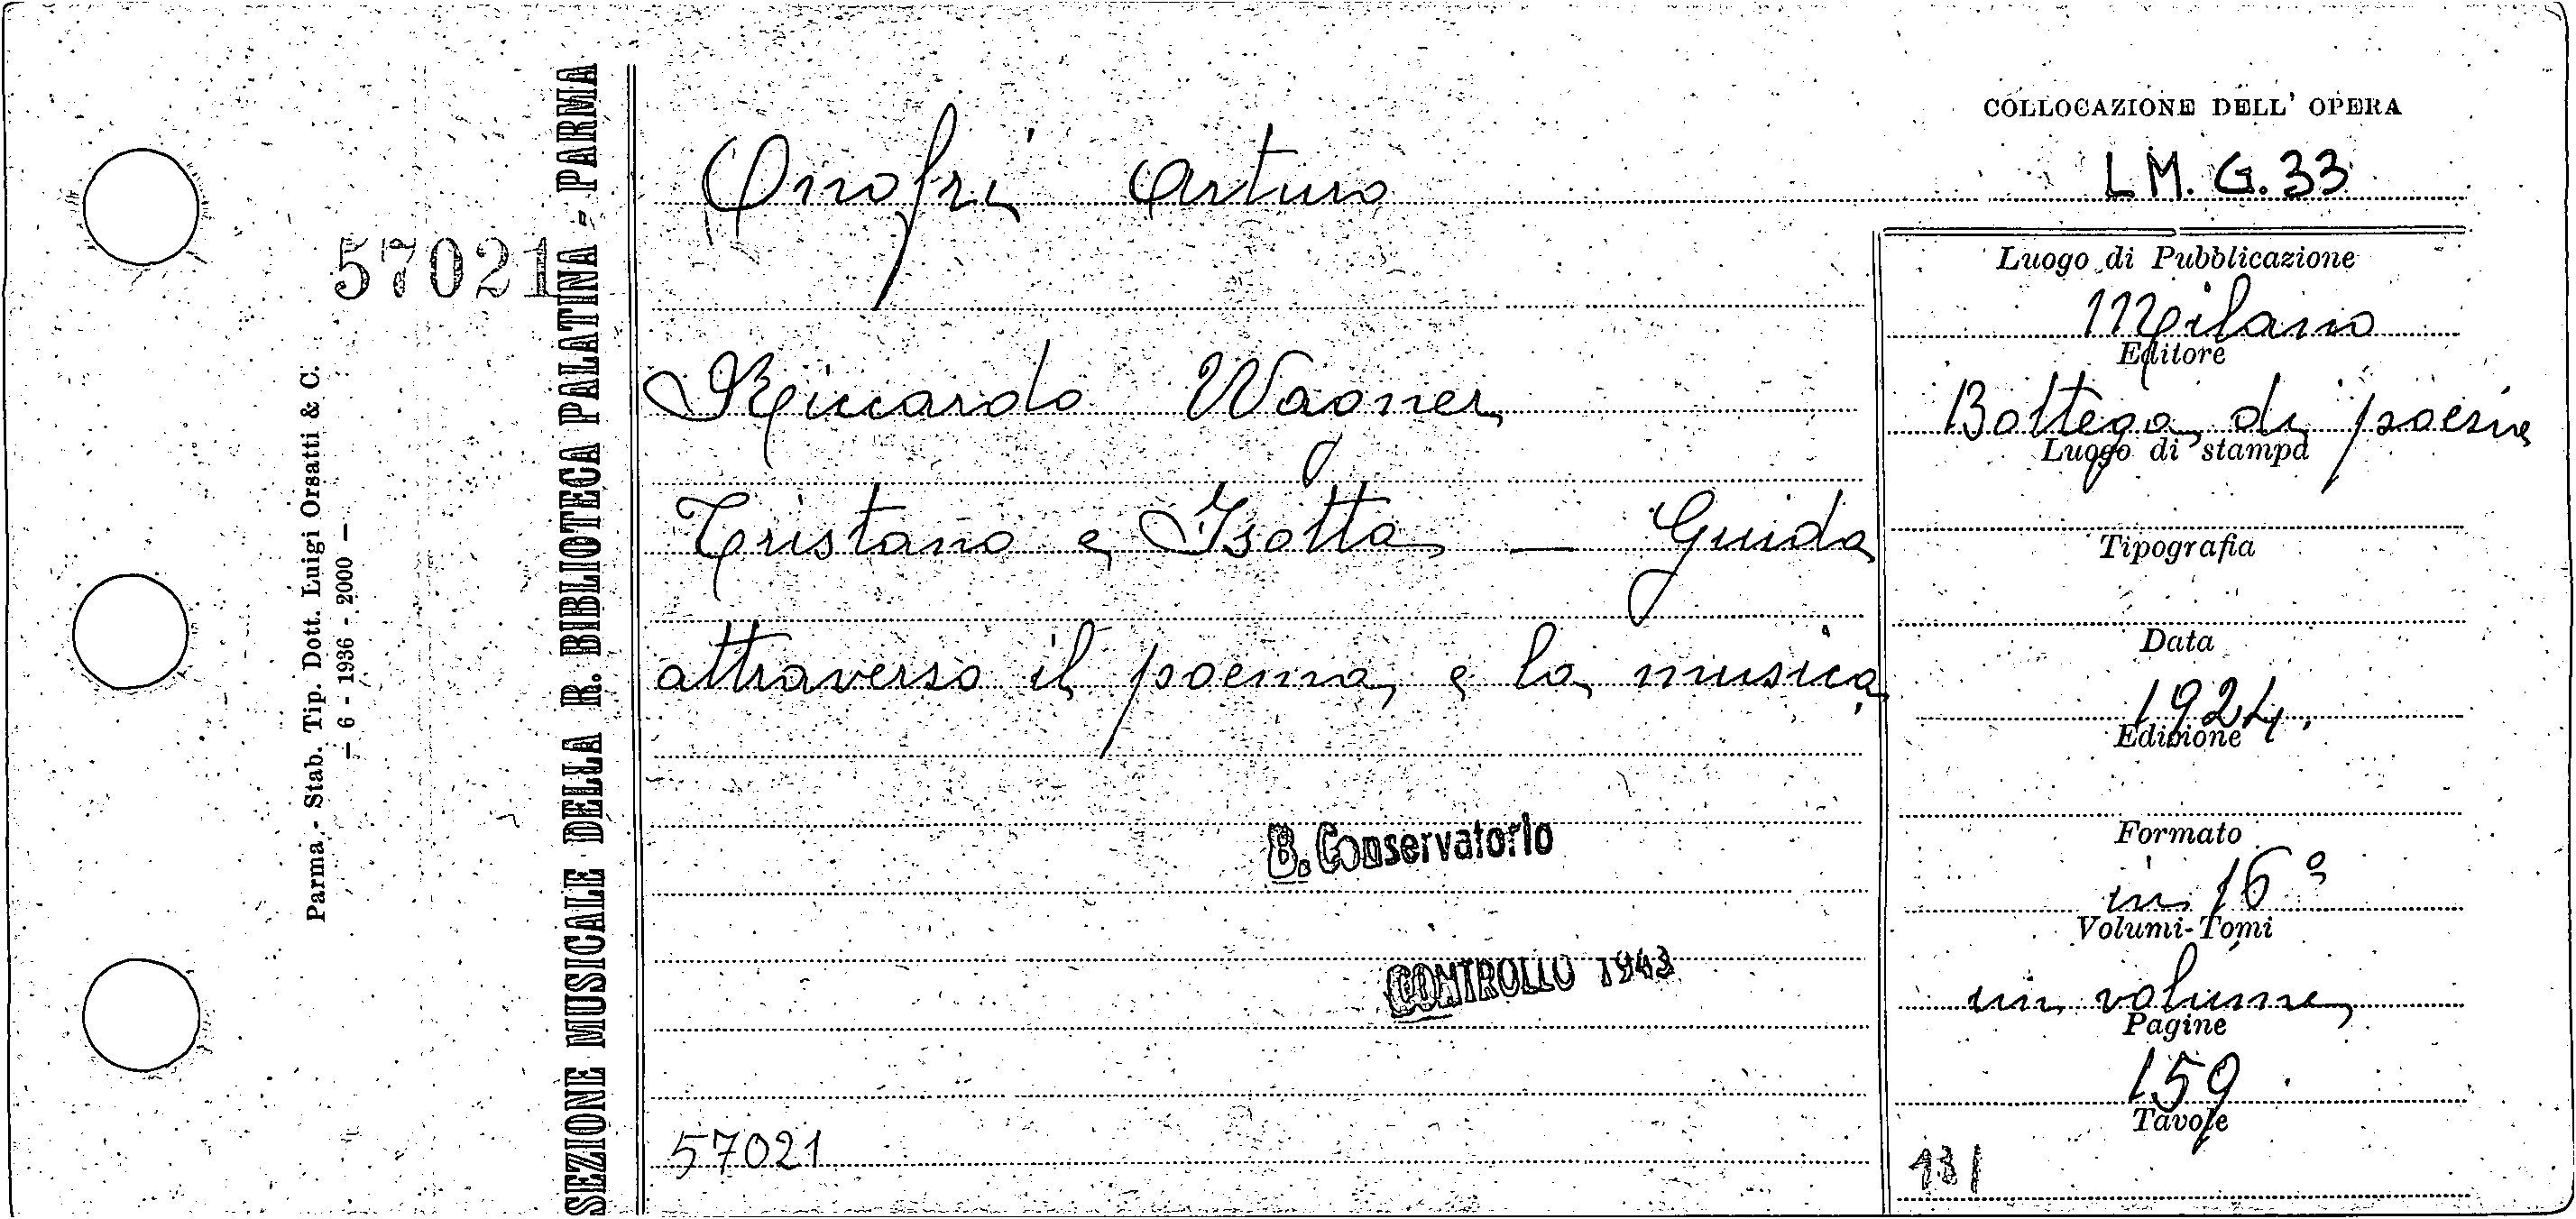 57021
Parma - Stab. Tip. Dott. Luigi Orsatti & C.
— 6 - 1936 - 2000 —
SEZIONE MUSICALE DELLA R. BIBLIOTECA PALATINA - PARMA
Onofri Arturo
Riccardo Wagner
Tristano e Isotta — Guida
attraverso il poema e la musica
B. Conservatorio
CONTROLLO 1943
57021
COLLOCAZIONE DELL' OPERA
L M. G. 33
Luogo di Pubblicazione
Milano
Editore
Bottega di poesia
Luogo di stampa
Tipografia
Data
1924
Edizione
Formato
in 16°
Volumi-Tomi
un volume
Pagine
159
Tavole